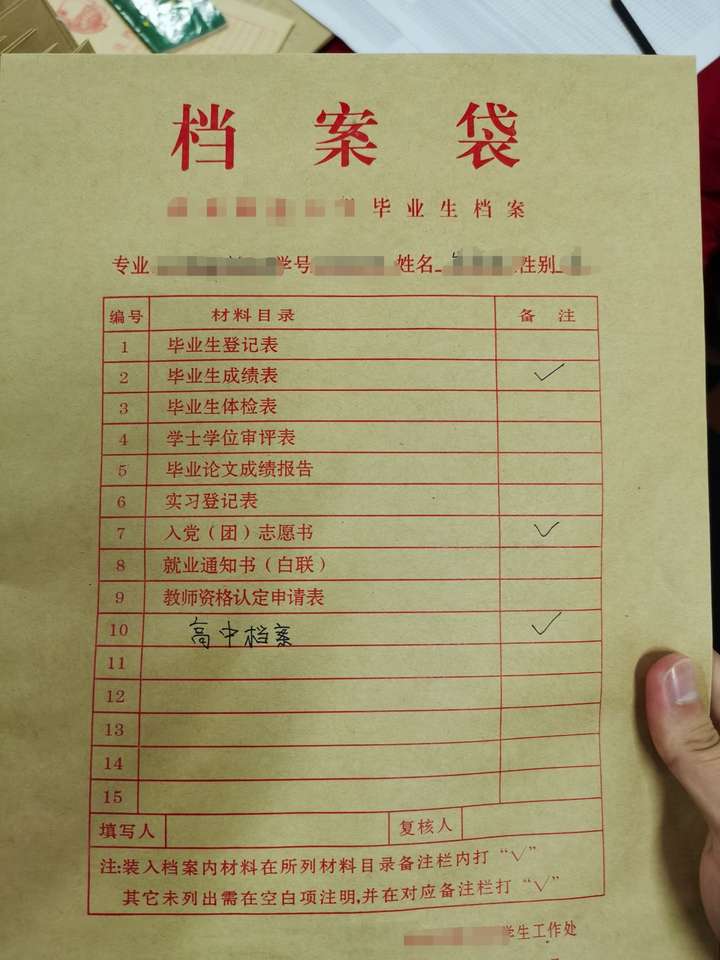 档案袋
毕业生档案
专业 学号 姓名 性别
编号 材料目录 备注
1 毕业生登记表
2 毕业生成绩表 ✓
3 毕业生体检表
4 学士学位审评表
5 毕业论文成绩报告
6 实习登记表
7 入党（团）志愿书 ✓
8 就业通知书（白联）
9 教师资格认定申请表
10 高中档案 ✓
11
12
13
14
15
填写人 复核人
注:装入档案内材料在所列材料目录备注栏内打“√”
其它未列出需在空白项注明,并在对应备注栏打“√”
学生工作处